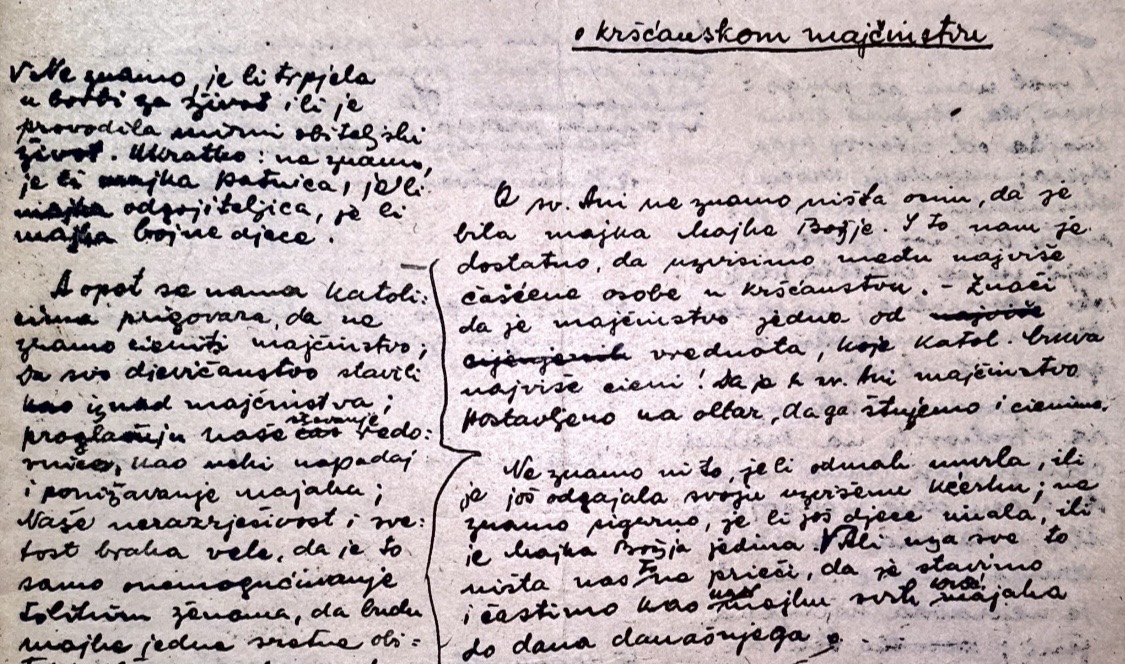 o kršćanskom majčinstvu
V Ne znamo je li trpjela
u borbi za život ili je
provodila mirni obiteljski
život. Ukratko: ne znamo,
je li majka patnica, je li
majka odgojiteljica, je li
majka brojne djece.
A opet se nama katoli:
cima prigovara, da ne
znamo cieniti majčinstvo;
da smo djevičanstvo stavili
kao iznad majčinstva;
štovanje
proglašuju naše redo:
vnice, kao neki napadaj
i ponižavanje majaka;
Naše nerazrješivost i sve:
tost braka vele, da je to
samo onemogućivanje
tolikim ženama, da budu
majke jedne sretne obi:
O sv. Ani ne znamo ništa osim, da je
bila majka Majke Božje. I to nam je
dostatno, da uzvisimo među najviše
čašćene osobe u kršćanstvu. - Znači
da je majčinstvo jedna od najviše
cijenjenih vrednota, koje Katol. Crkva
najviše cieni! Da je k sv. Ani majčinstvo
postavljeno na oltar, da ga štujemo i cienimo.
Ne znamo ni to, je li odmah umrla, ili
je još odgajala svoju uzvišenu kćerku; ne
znamo sigurno, je li još djece imala, ili
je Majka Božja jedina. V Ali uza sve to
ništa nas to ne prieči, da je stavimo
i častimo kao majku svih majaka
do dana današnjega.